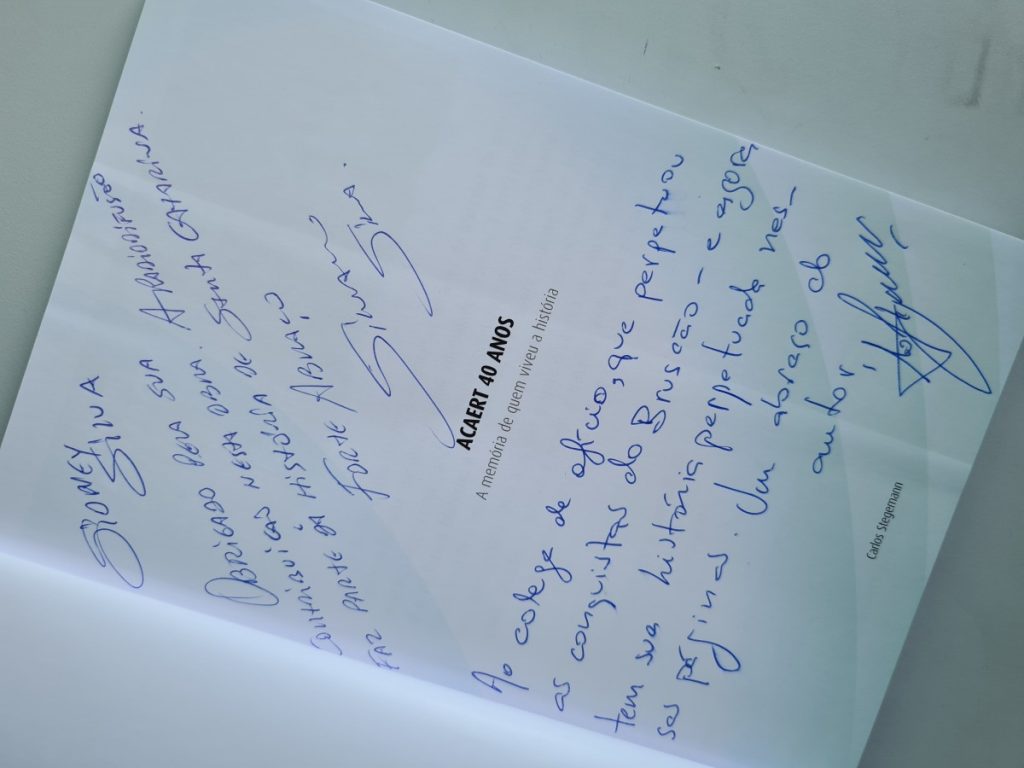 SIDNEY
SILVA
OBRIGADO PELA SUA
CONTRIBUIÇÃO NESSA OBRA. A RADIODIFUSÃO
FAZ PARTE DA HISTÓRIA DE SANTA CATARINA.
FORTE ABRAÇO
SILVANO
SILVA.
ACAERT 40 ANOS
A memória de quem viveu a história
Ao colega de ofício, que perpetuou
as conquistas do Bruscão - e agora
tem sua história perpetuada nes-
sas páginas. Um abraço do
autor,
Carlos Stegemann